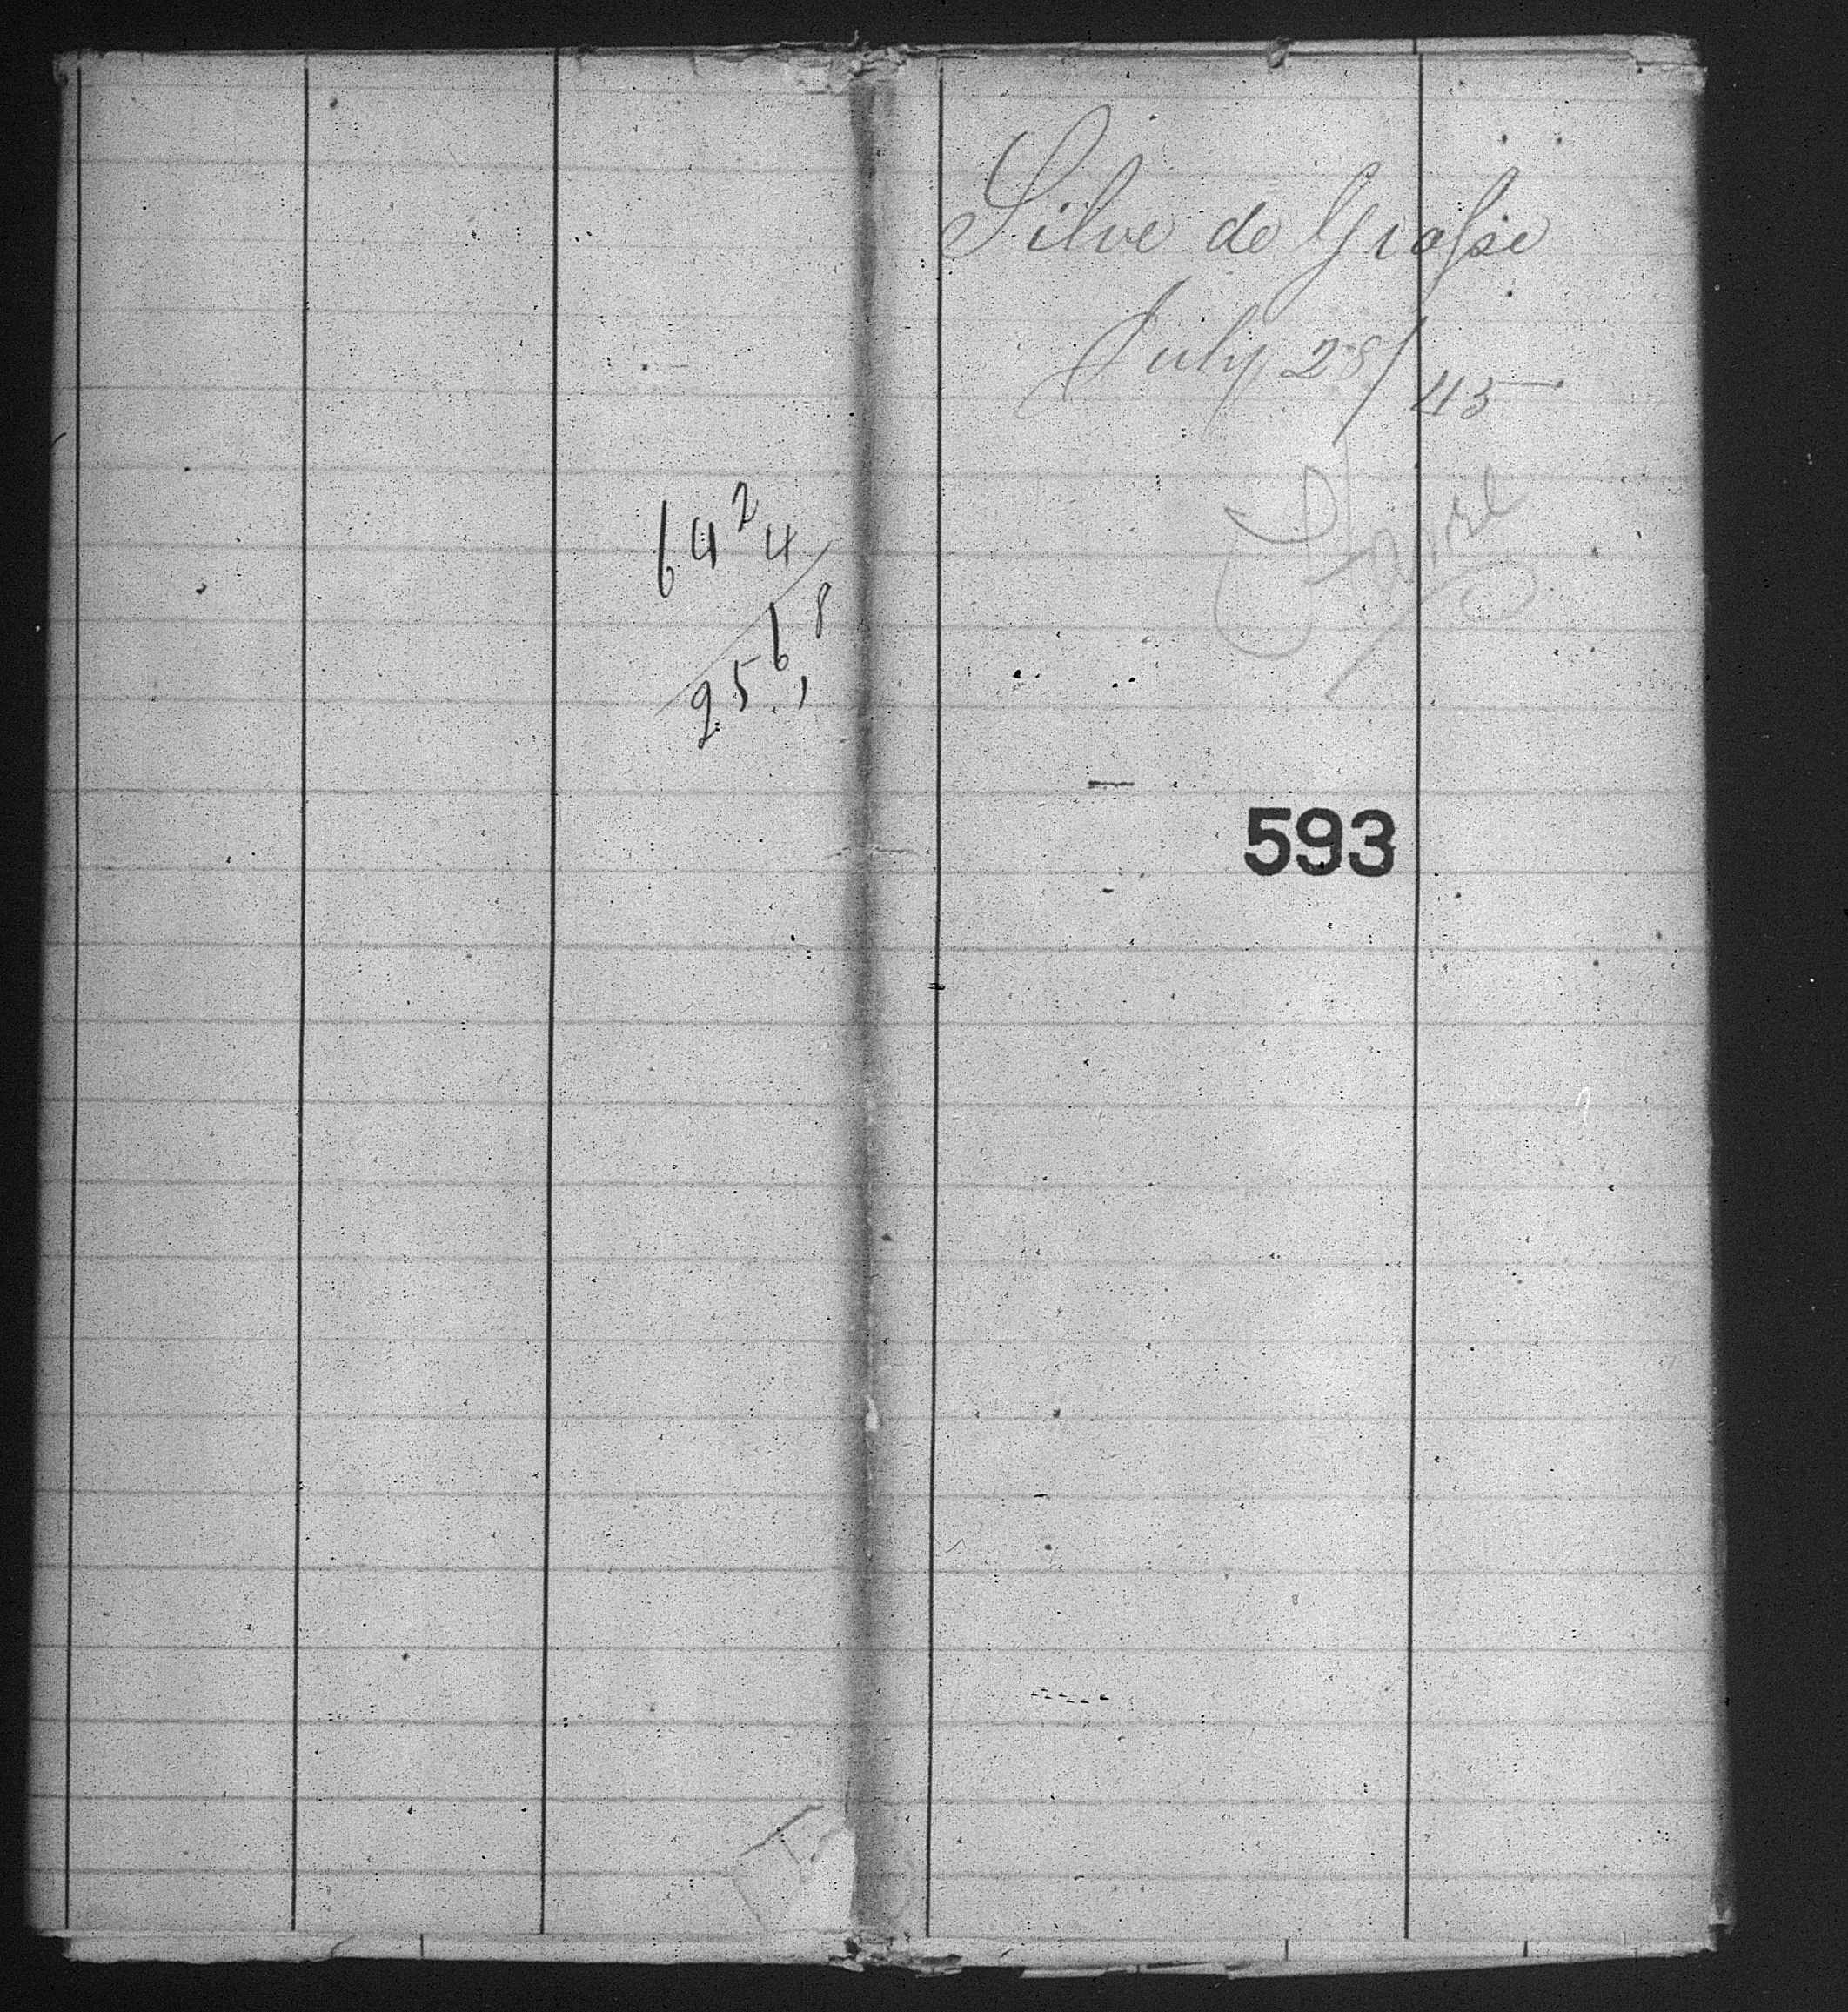 64 2 4
2 5 6, 8
Silve de Grasse
July 28/45
593